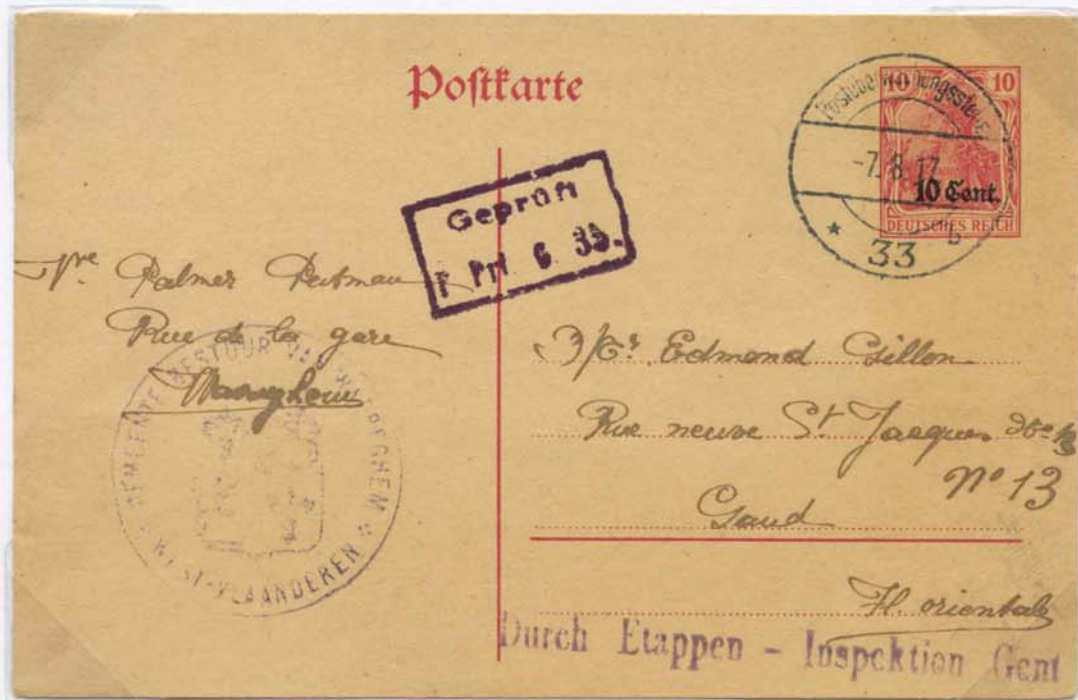 Postkarte
10 10
10 Cent.
DEUTSCHES REICH
Postüberwachungsstelle
-7.8.17
* 33 b
Geprüft
P. Prf. 6 33.
Palmer
Rue de la gare
GEMEENTE BESTUUR VAN WAEREGHEM
* WEST-VLAANDEREN *
Edmond Gillon
Rue neuve St Jacques
No 13
Gand
Fl. orientale
Durch Etappen - Inspektion Gent